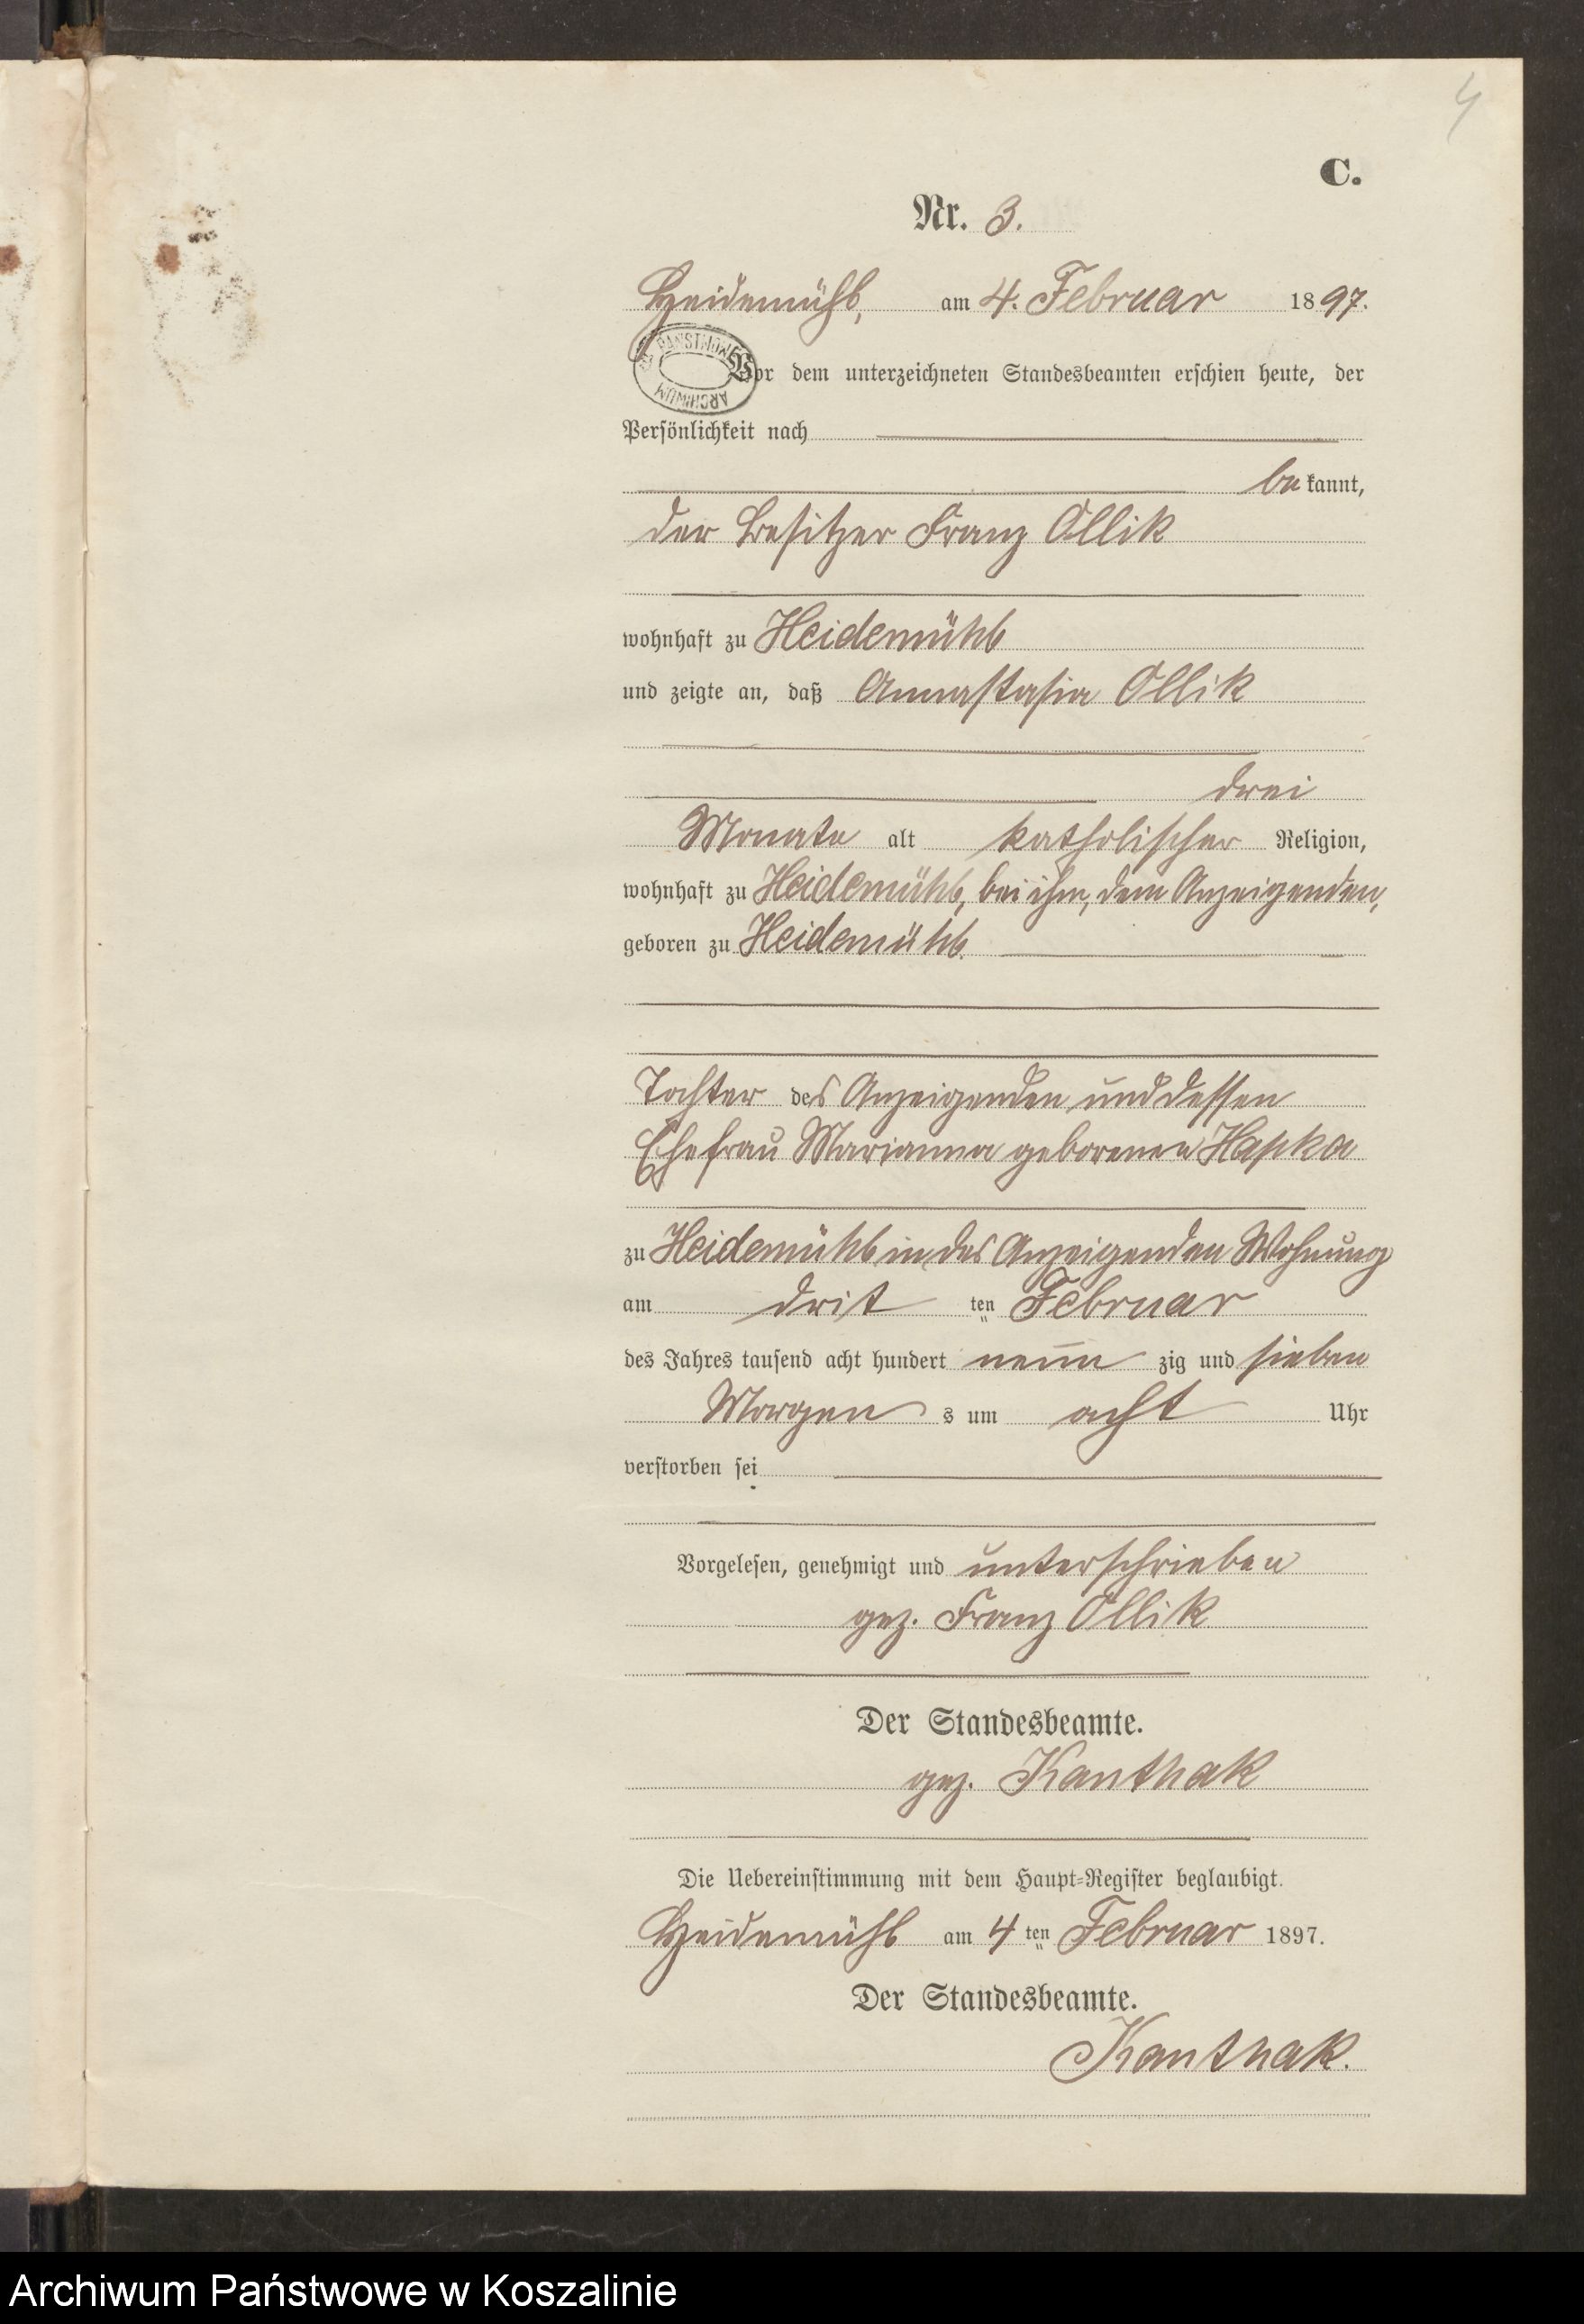 4
C.
Nr. 3.
Heidemühl, am 4. Februar 1897.
PAŃSTWOWE
ARCHIWUM
Vor dem unterzeichneten Standesbeamten erschien heute, der
Persönlichkeit nach
be kannt,
der Besitzer Franz Ollik
wohnhaft zu Heidemühl
und zeigte an, daß Annastasia Ollik
drei
Monate alt katholischer Religion,
wohnhaft zu Heidemühl, bei ihm, dem Anzeigenden,
geboren zu Heidemühl.
Tochter des Anzeigenden und dessen
Ehefrau Marianna geborenen Hapka
zu Heidemühl in des Anzeigenden Wohnung
am drit ten Februar
des Jahres tausend acht hundert neun zig und sieben
Morgen s um acht Uhr
verstorben sei
Vorgelesen, genehmigt und unterschrieben
gez. Franz Ollik
Der Standesbeamte.
gez. Kanthak
Die Uebereinstimmung mit dem Haupt-Register beglaubigt.
Heidemühl am 4 ten Februar 1897.
Der Standesbeamte.
Kanthak.
Archiwum Państwowe w Koszalinie